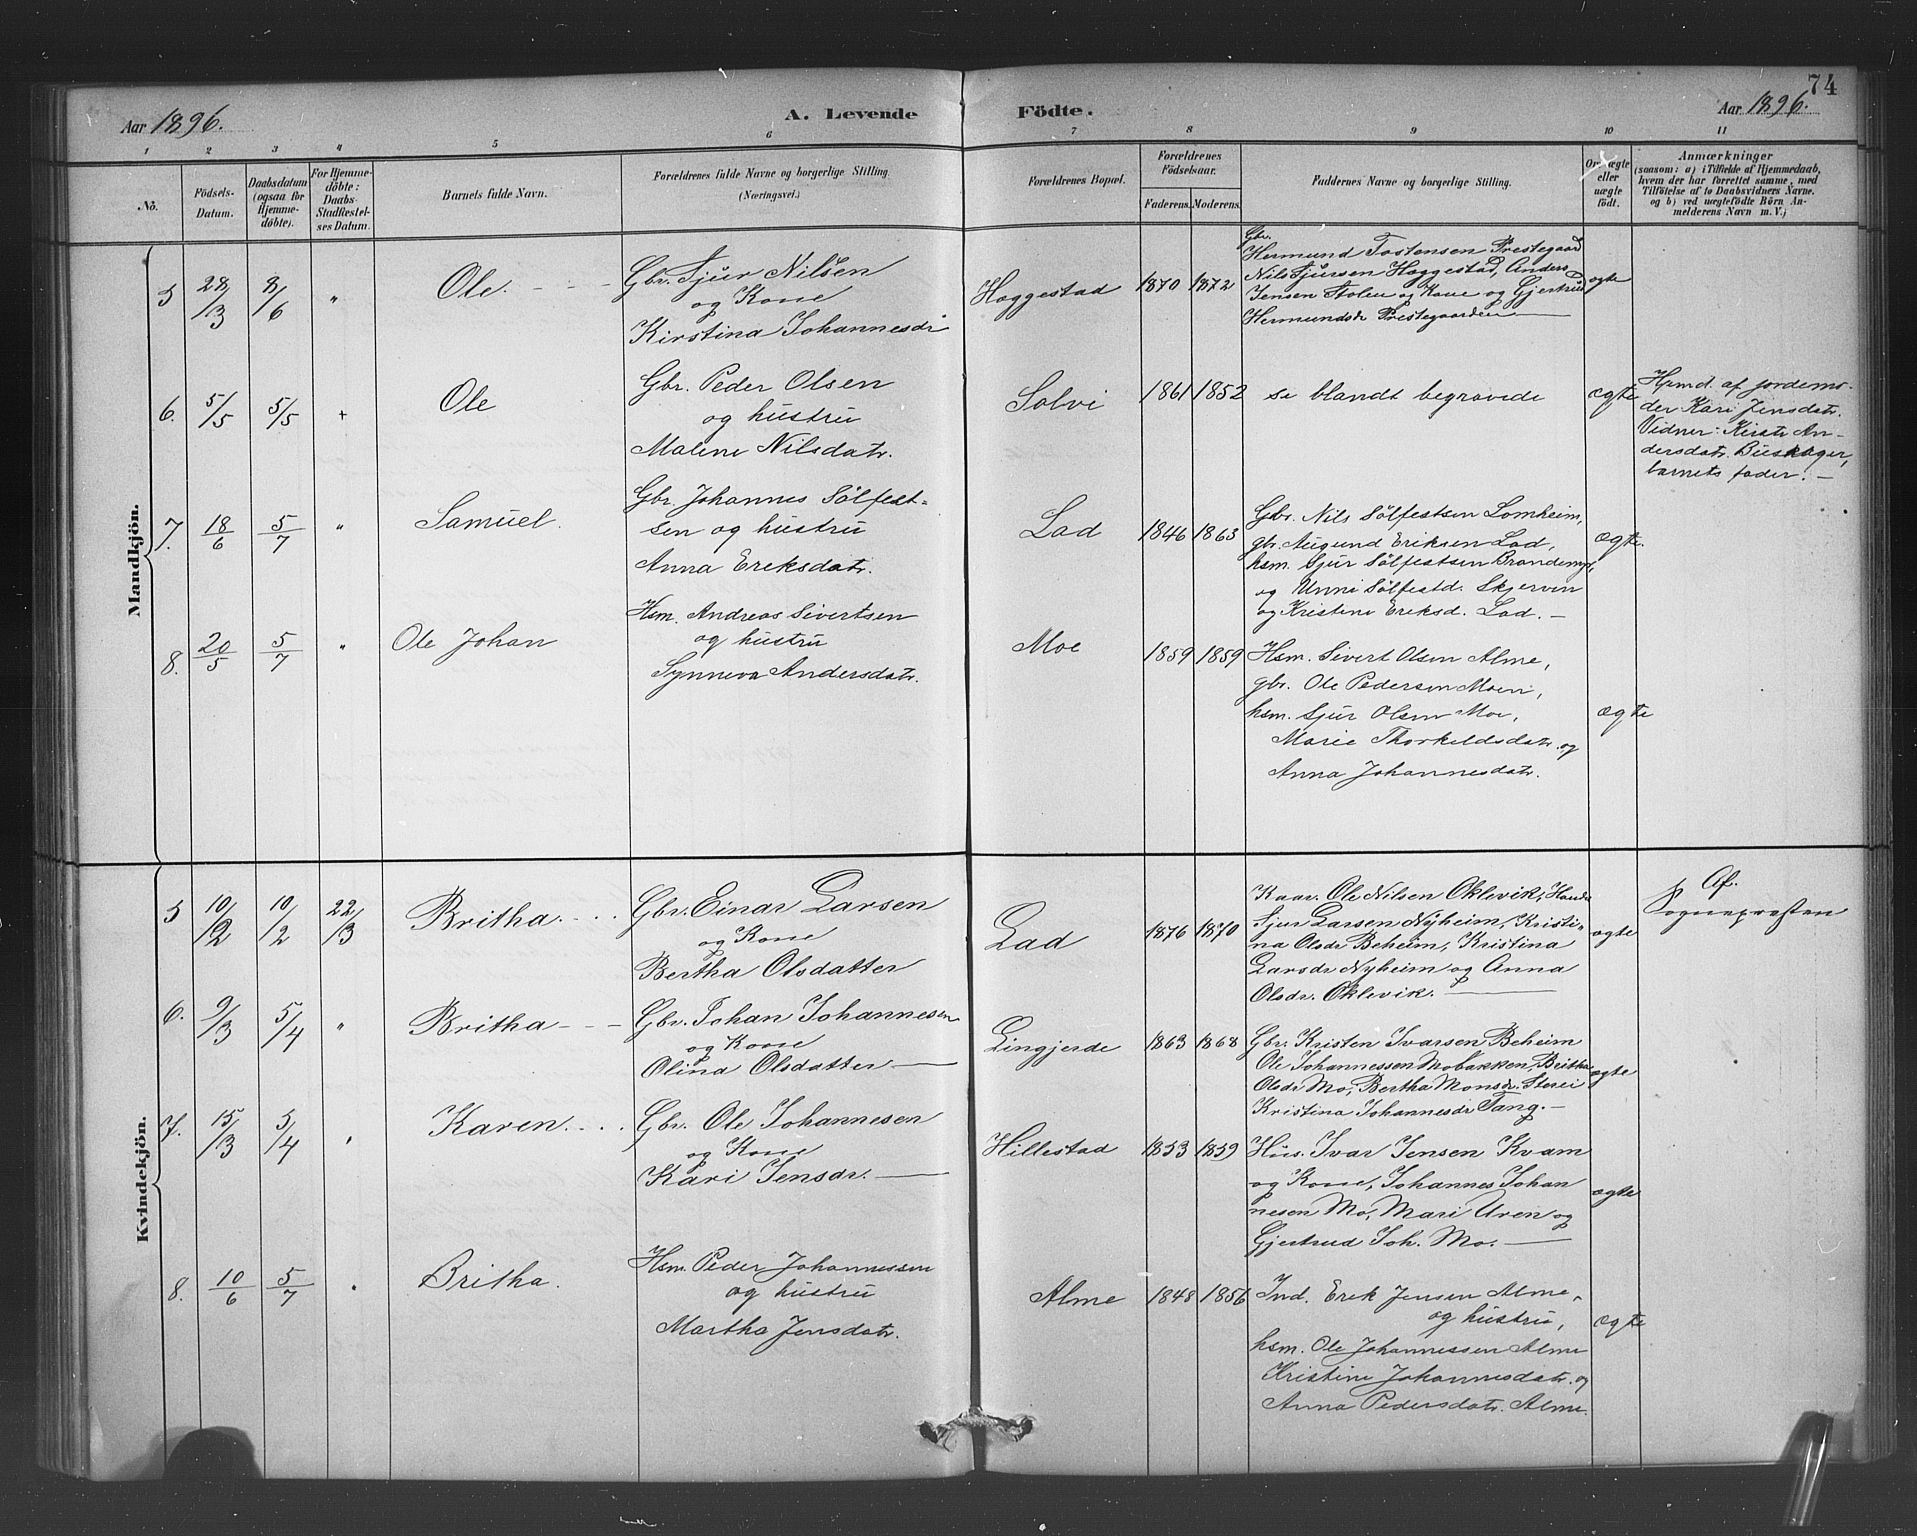 74
Aar 1896.
A. Levende
Födte.
Aar 1896.
1 2 3 4 5 6 7 8 9 10 11
No.
Födsels-
Datum.
Daabsdatum
(ogsaa for
Hjemme-
döbte).
For Hjemme-
döbte:
Daabs-
Stadfæstel-
ses Datum.
Barnets fulde Navn.
Forældrenes fulde Navne og borgerlige Stilling.
(Næringsvei.)
Forældrenes Bopæl.
Forældrenes
Födselsaar.
Faderens. Moderens.
Faddernes Navne og borgerlige Stilling.
Om ægte
eller
uægte
födt.
Anmærkninger
(saasom: a) i Tilfælde af Hjemmedaab,
hvem der har forrettet samme, med
Tilföielse af to Daabsvidners Navne,
og b) ved uægtefödte Börn An-
melderens Navn m. V.)
Mandkjön.
5 28/3 8/6 " Ole.
Gbr. Sjur Nilsen
og Kone
Kirstina Johannesdr
Hoggestad 1870 1872
Gbr.
Hermund Tostensen Prestegaard
Nils Sjursen Hoggestad, Anders
Jensen Stolen og Kone og Gjertrud
Hermundsdr Prestegaarden
ægte
6. 5/5 5/5 + Ole
Gbr. Peder Olsen
og hustru
Malene Nilsdatr.
Solvi 1861 1852 se blandt begravede ægte
Hjmd. af jordemo-
der Kari Jensdatr.
Vidner: Kirsti An-
dersdatr.
barnets fader. —
7. 18/6 5/7 " Samuel.
Gbr. Johannes Sölfest-
sen og hustru
Anna Eriksdatr.
Lad 1846 1863
Gbr. Nils Sölfestsen Lomheim,
gbr. Augund Eriksen Lad,
hsm. Sjur Sölfestsen
og Unni Sölfestd. Skjervin
og Kristine Eriksd. Lad. —
ægte.
8. 20/5 5/7 " Ole Johan
Hsm. Andreas Sivertsen
og hustru
Synneva Andersdatr.
Moe 1859 1859
Hsm. Sivert Olsen Alme,
gbr. Ole Pedersen Moen,
hsm. Sjur Olsen Moe,
Marie Thorkeldsdatr. og
Anna Johannesdatr.
ægte
Kvindekjön.
5 10/2 10/2 22/3 Britha.
Gbr. Einar Larsen
og Kone
Bertha Olsdatter
Lad 1876 1870
Kaar. Ole Nilsen Oklevik,
Sjur Larsen Nyheim, Kristi-
na Olsdr Beheim, Kristina
Larsdr Nyheim og Anna
Olsdr. Oklevik.
ægte
Af
Sognepræsten
6. 9/3 5/4 " Britha
Gbr. Johan Johannesen
og Kone
Olina Olsdatter
Lingjerde 1863 1868
Gbr. Kristen Ivarsen Beheim
Ole Johannessen Mobakken, Britha
Olsdr Mo, Bertha Monsdr. Storei
Kristina Johannesdr Tang. —
ægte
7. 15/3 5/4 " Karen.
Gbr. Ole Johannesen
og Kone
Kari Jensdr.
Hillestad 1853 1859
Hus. Ivar Jensen Kvam
og Kone, Johannes Johan
nesen Mo, Mari Uren og
Gjertrud Joh. Mo.
ægte
8. 10/6 5/7 " Britha.
Hsm. Peder Johannessen
og hustru
Martha Jensdatr.
Alme 1848 1856
Ind. Erik Jensen Alme,
og hustru,
hsm. Ole Johannessen Alme
Kristine Johannesdatr. og
Anna Pedersdatr. Alme.
ægte